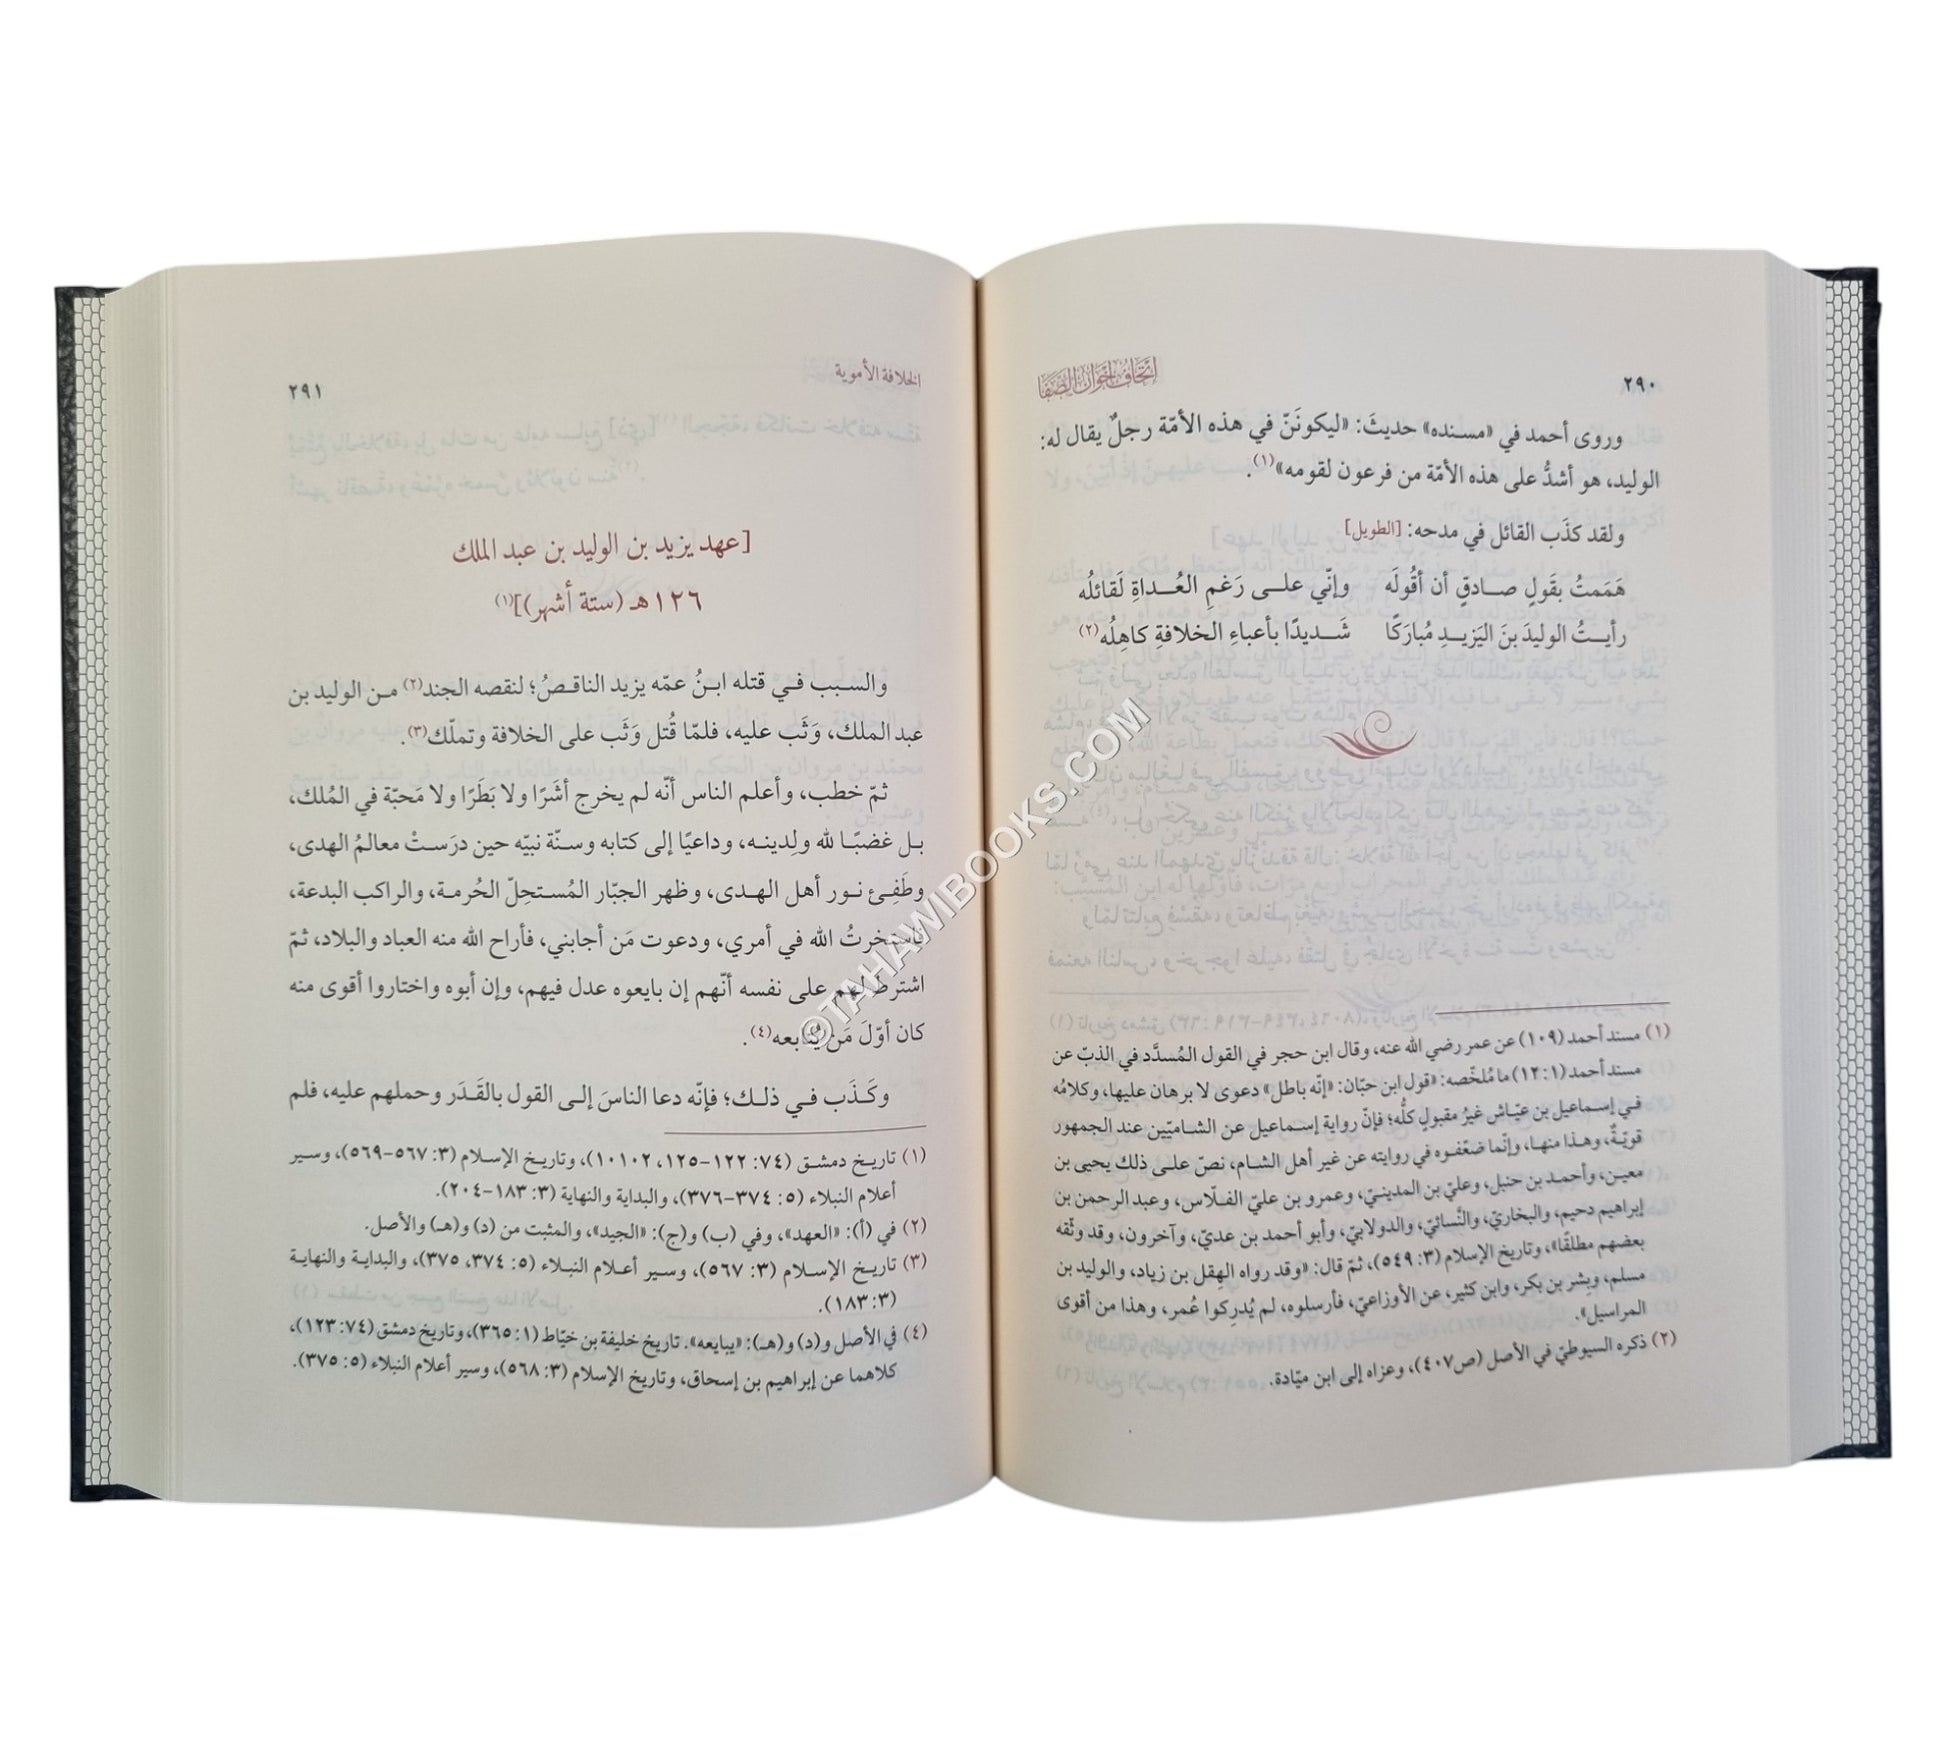 ٢٩٠
إتحاف إخوان الصفا
وروى أحمد في «مسنده» حديثَ: «ليكونَنّ في هذه الأمّة رجلٌ يقال له:
الوليد، هو أشدُّ على هذه الأمّة من فرعون لقومه»(١).
ولقد كذَب القائل في مدحه: [الطويل]
هَمَمتُ بقَولٍ صـادقٍ أن أقُولَه وإنّي علـى رَغمِ العُـداةِ لَقائلُه
رأيـتُ الوليدَ بنَ اليَزيـدِ مُبارَكًا شَـديدًا بأعباءِ الخلافةِ كاهِلُه(٢)
(١) مسند أحمد (١٠٩) عن عمر رضي الله عنه، وقال ابن حجر في القول المُسدَّد في الذبّ عن
مسند أحمد (١: ١٢) ما مُلخّصه: «قول ابن حبّان: «إنّه باطل» دعوى لا برهان عليها، وكلامُه
في إسماعيل بن عيّاش غيرُ مقبولٍ كلُّه؛ فإنّ رواية إسـماعيل عن الشاميّين عند الجمهور
قويّـةٌ، وهـذا منهـا، وإنّما ضعّفـوه في روايته عن غير أهل الشـام، نصّ علـى ذلك يحيى بن
معيـن، وأحمـد بن حنبل، وعليّ بن المدينـيّ، وعمرو بن عليّ الفـلّاس، وعبد الرحمن بن
إبراهيم دحيم، والبخاريّ، والنَّسائيّ، والدولابيّ، وأبو أحمد بن عديّ، وآخرون، وقد وثّقه
بعضهم مطلقًا»، وتاريخ الإسلام (٣: ٥٤٩)، ثمّ قال: «وقد رواه الهِقل بن زياد، والوليد بن
مسلم، وبِشر بن بكر، وابن كثير، عن الأوزاعيّ، فأرسلوه، لم يُدرِكوا عُمر، وهذا من أقوى
المراسيل».
(٢) ذكره السيوطيّ في الأصل (ص٤٠٧)، وعزاه إلى ابن ميّادة.
الخلافة الأموية
٢٩١
[عهد يزيد بن الوليد بن عبد الملك
١٢٦هـ (ستة أشهر)](١)
والسـبب فـي قتله ابـنُ عمّه يزيد الناقـصُ؛ لنقصه الجند(٢) مـن الوليد بن
عبد الملك، وَثَب عليه، فلمّا قُتل وثَب على الخلافة وتملّك(٣).
ثمّ خطب، وأعلم الناس أنّه لم يخرج أشَرًا ولا بَطَرًا ولا مَحبّة في المُلك،
بـل غضبًـا لله ولِدينـه، وداعيًا إلى كتابه وسنّة نبيّه حين درَستْ معالمُ الهدى،
وطَفِـئ نـور أهل الهـدى، وظهر الجبّار المُستحِلّ الحُرمـة، والراكب البدعة،
فاستخرتُ الله في أمري، ودعوت مَن أجابني، فأراح الله منه العباد والبلاد، ثمّ
اشترط لهم على نفسه أنّهم إن بايعوه عدل فيهم، وإن أبوه واختاروا أقوى منه
كان أوّلَ مَن يُتابعه(٤).
وكَـذَب فـي ذلـك؛ فإنّه دعا الناسَ إلـى القول بالقَـدَر وحملهم عليه، فلم
(١) تاريـخ دمشـق (٧٤: ١٢٢–١٢٥، ١٠١٠٢)، وتاريـخ الإسـلام (٣: ٥٦٧–٥٦٩)، وسـير
أعلام النبلاء (٥: ٣٧٤–٣٧٦)، والبداية والنهاية (٣: ١٨٣–٢٠٤).
(٢) في (أ): «العهد»، وفي (ب) و(ج): «الجيد»، والمثبت من (د) و(هـ) والأصل.
(٣) تاريـخ الإسـلام (٣: ٥٦٧)، وسـير أعـلام النبلاء (٥: ٣٧٤، ٣٧٥)، والبدايـة والنهايـة
(٣: ١٨٣).
(٤) في الأصل و(د) و(هـ): «يبايعه». تاريخ خليفة بن خيّاط (١: ٣٦٥)، وتاريخ دمشق (٧٤: ١٢٣)،
كلاهما عن إبراهيم بن إسحاق، وتاريخ الإسلام (٣: ٥٦٨)، وسير أعلام النبلاء (٥: ٣٧٥).
©TAHAWIBOOKS.COM